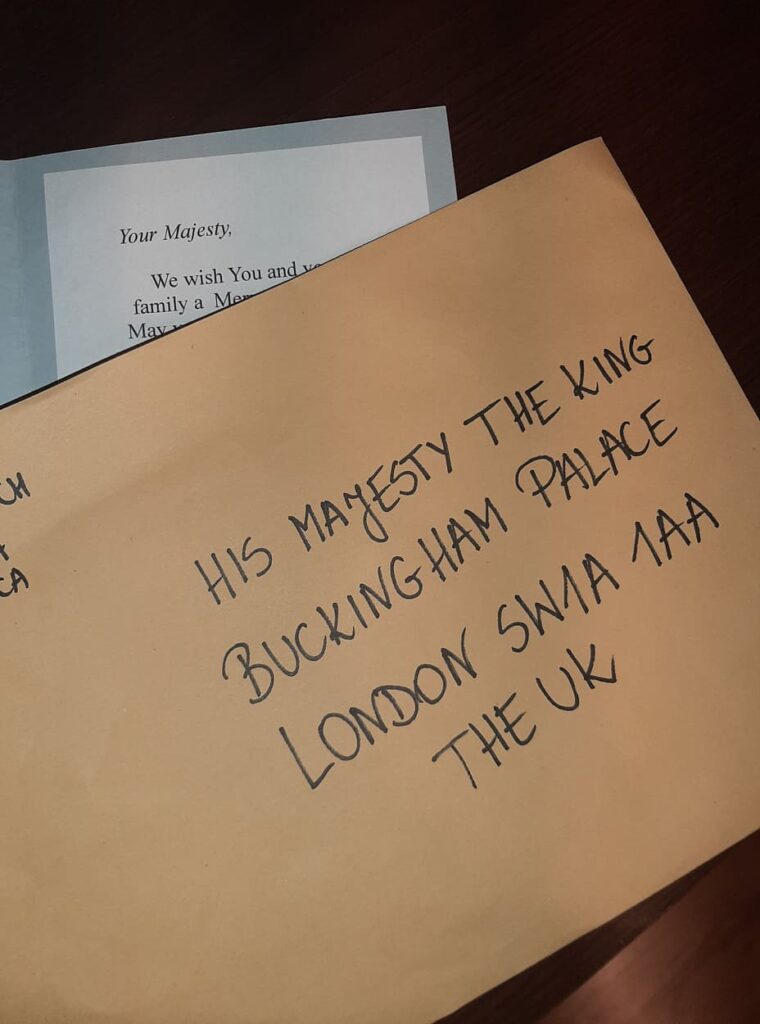 Your Majesty,
We wish You and
family a
May
CH
CA
HIS MAJESTY THE KING
BUCKINGHAM PALACE
LONDON SW1A 1AA
THE UK